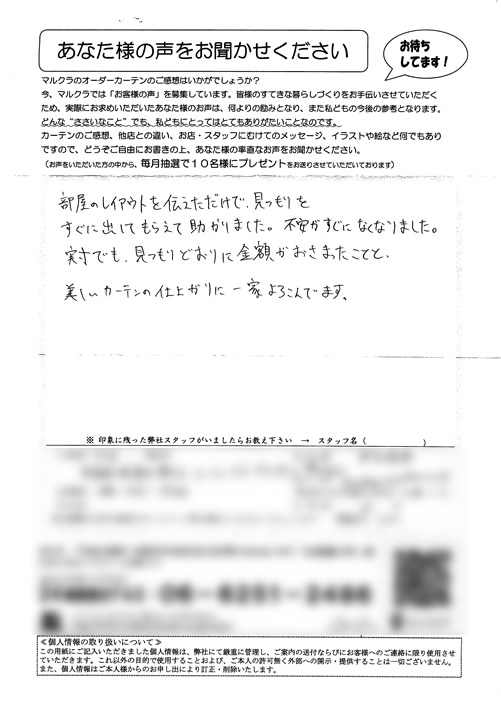 あなた様の声をお聞かせください
お待ち
してます！
マルクラのオーダーカーテンのご感想はいかがでしょうか？
今、マルクラでは「お客様の声」を募集しています。皆様のすてきな暮らしづくりをお手伝いさせていただく
ため、実際にお求めいただいたあなた様のお声は、何よりの励みとなり、また私どもの今後の参考となります。
どんな“ささいなこと”でも、私どもにとってはとてもありがたいことなのです。
カーテンのご感想、他店との違い、お店・スタッフにむけてのメッセージ、イラストや絵など何でもあり
ですので、どうぞご自由にお書きの上、あなた様の率直なお声をお聞かせください。
（お声をいただいた方の中から、毎月抽選で１０名様にプレゼントをお送りさせていただいております）
部屋のレイアウトを伝えただけで、見つもりを
すぐに出してもらえて助かりました。不安がすぐになくなりました。
実寸でも、見つもりどおりに金額がおさまったことと、
美しいカーテンの仕上がりに一家よろこんでます。
※ 印象に残った弊社スタッフがいましたらお教え下さい → スタッフ名（ ）
06-6251-2486
≪個人情報の取り扱いについて≫
この用紙にご記入いただきました個人情報は、弊社にて厳重に管理し、ご案内の送付ならびにお客様へのご連絡に限り使用させ
ていただきます。これ以外の目的で使用することおよび、ご本人の許可無く外部への開示・提供することは一切ございません。
また、個人情報はご本人様からのお申し出により訂正・削除いたします。